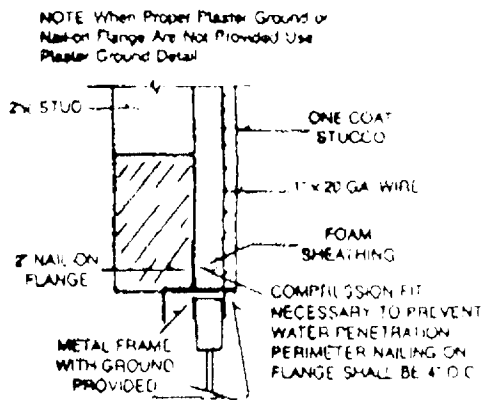 NOTE When Proper Plaster Ground or
Nail-on Flange Are Not Provided Use
Plaster Ground Detail
2x STUD
ONE COAT
STUCCO
1" x 20 GA. WIRE
FOAM
SHEATHING
2" NAIL-ON
FLANGE
COMPRESSION FIT
NECESSARY TO PREVENT
WATER PENETRATION
PERIMETER NAILING ON
FLANGE SHALL BE 4" O.C.
METAL FRAME
WITH GROUND
PROVIDED